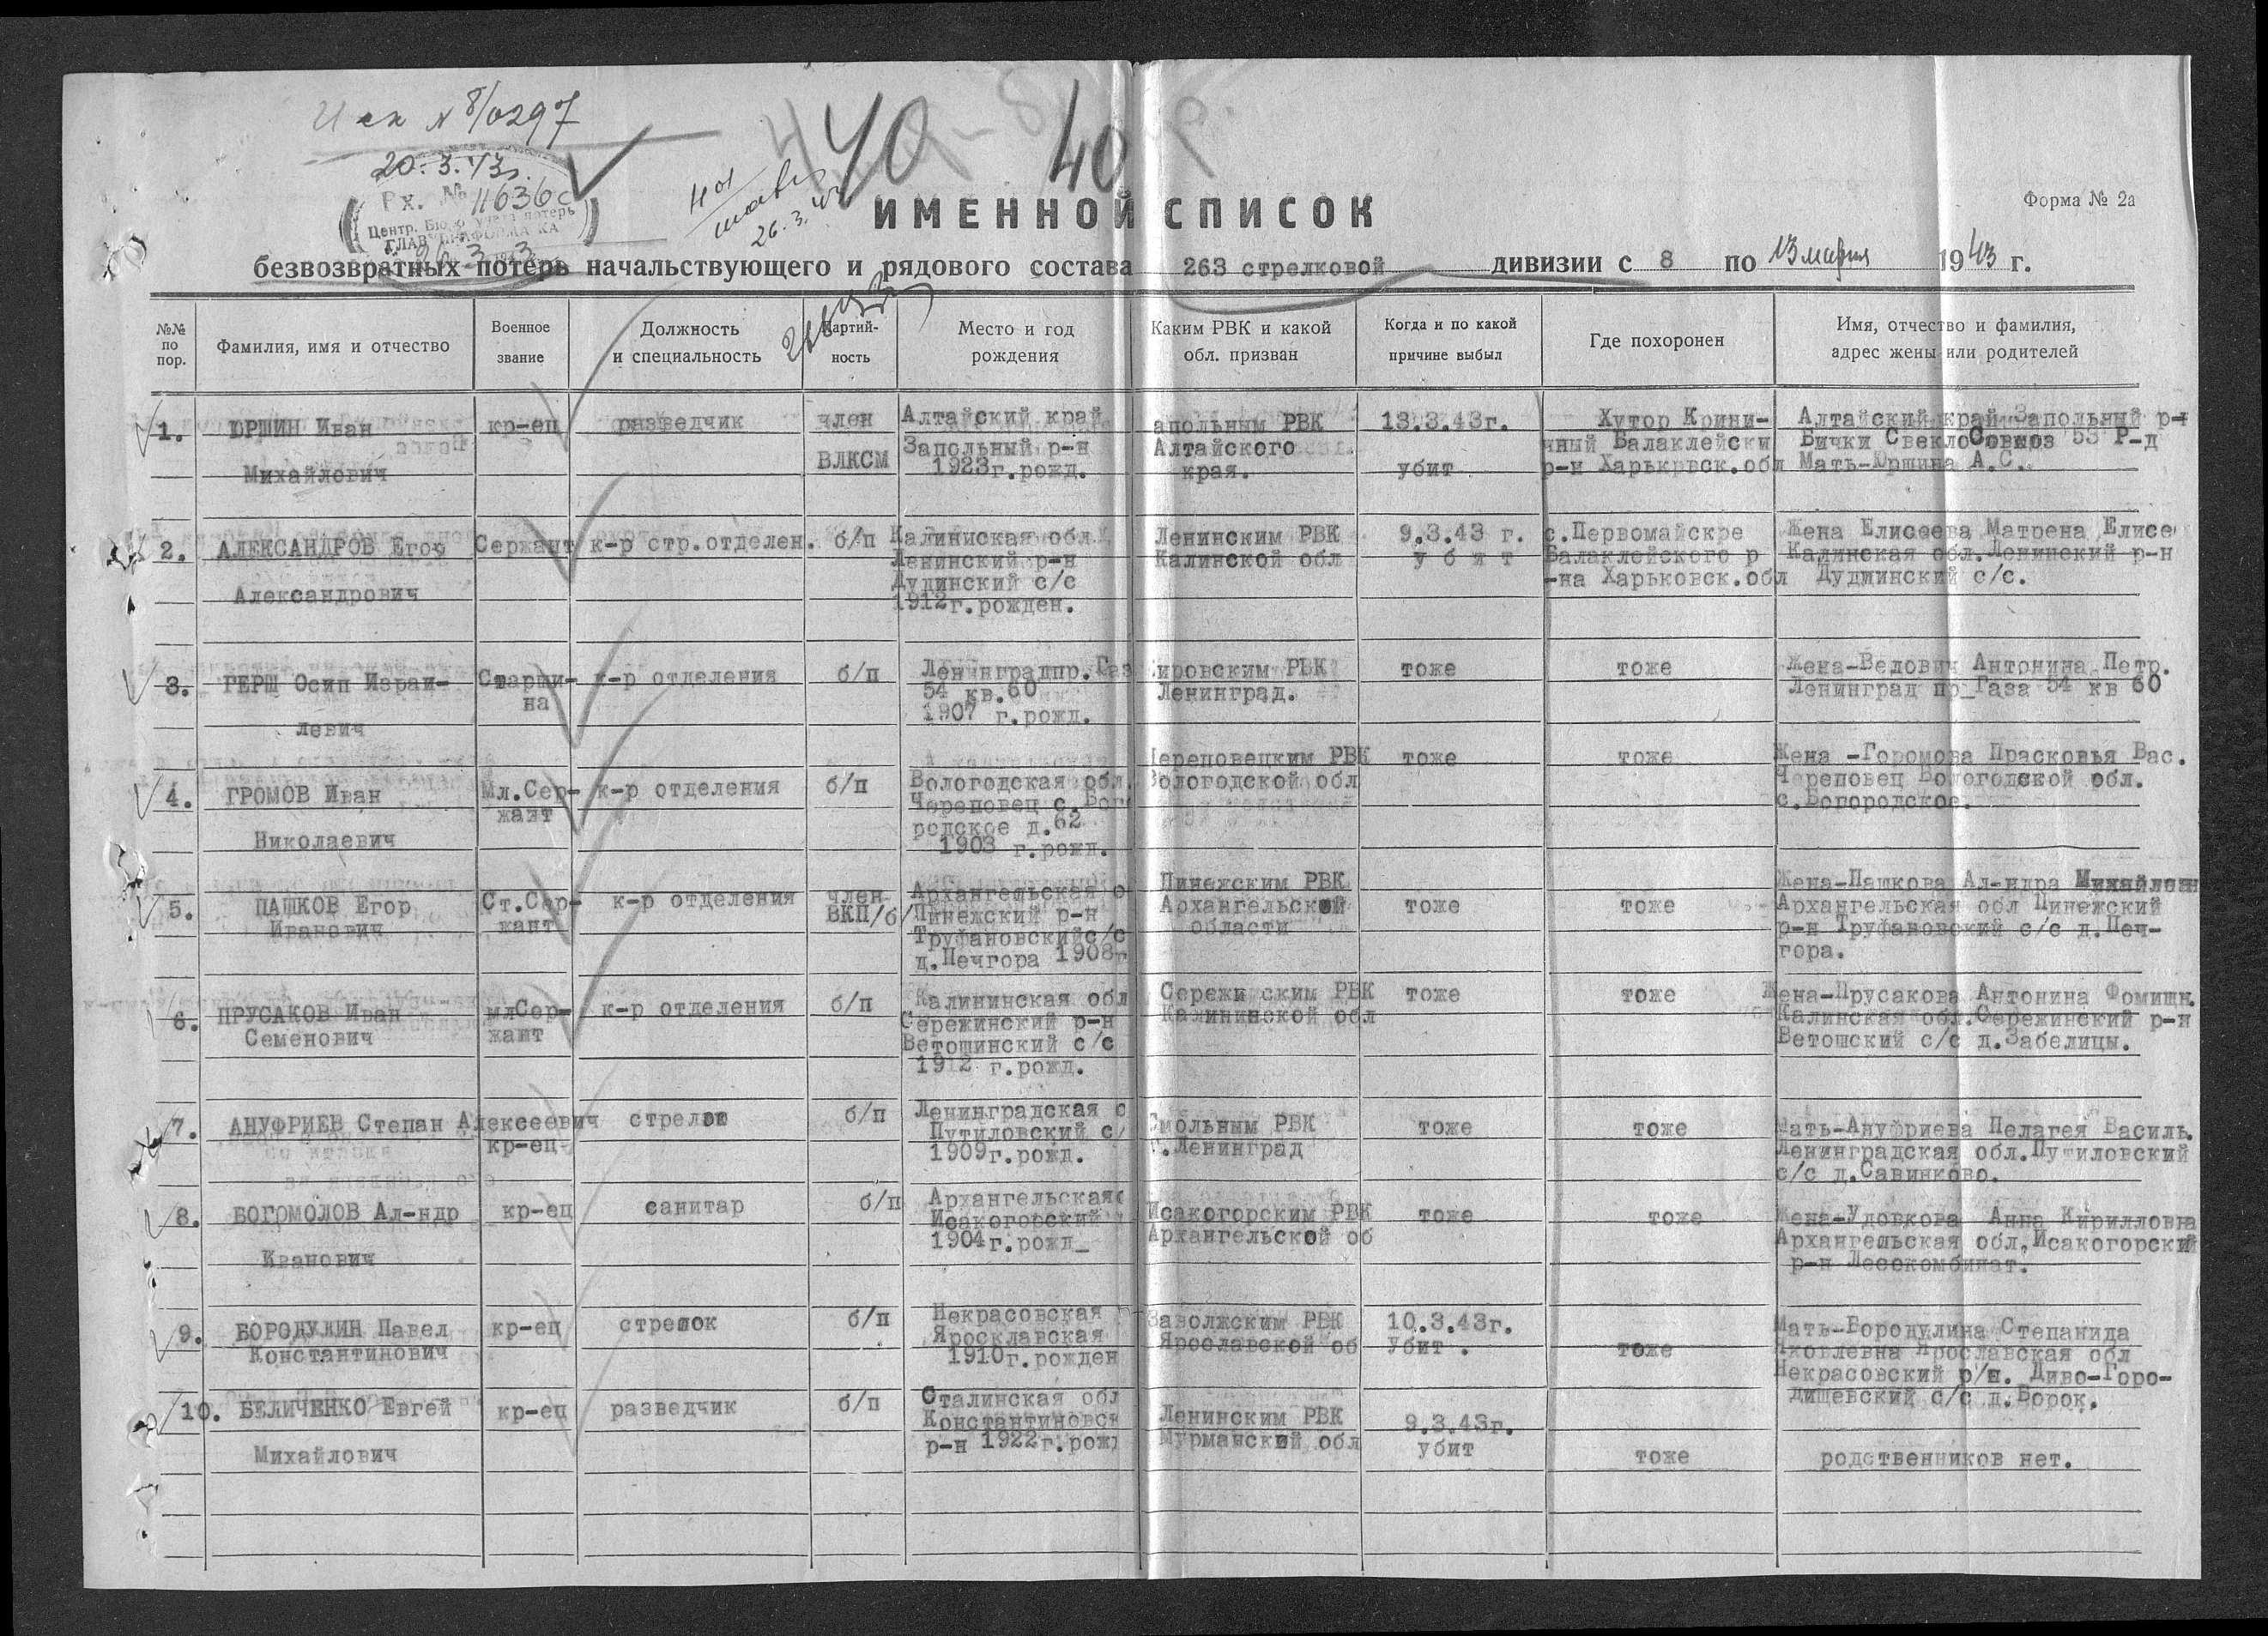 Исх № 8/0297
20.3.43г.
Вх. № 11636с
Центр. Бюро учета потерь
26.3.43
40 40
26.3.43
ИМЕННОЙ СПИСОК
Форма № 2а
безвозвратных потерь начальствующего и рядового состава 263 стрелковой дивизии с 8 по 13 марта 1943 г.
№№ по пор.
Фамилия, имя и отчество
Военное звание
Должность и специальность
Партий-ность
Место и год рождения
Каким РВК и какой обл. призван
Когда и по какой причине выбыл
Где похоронен
Имя, отчество и фамилия, адрес жены или родителей
1. ЮРШИН Иван
Михайлович
кр-ец
разведчик
член
ВЛКСМ
Алтайский край
Запольный р-н
1923г.рожд.
апольным РВК
Алтайского
края.
13.3.43г.
убит
Хутор Крини-
чный Балаклейски
р-н Харькрвск.обл
Алтайский край Запольный р-н
Бички СвеклоСовхоз 53 Р-д
Мать-Юршина А.С.
2. АЛЕКСАНДРОВ Егор
Александрович
Сержант
к-р стр.отделен.
б/п
Калинмская обл
Ленинский р-н
Дудинский с/с
1912г.рожден.
Ленинским РВК
Калинской обл
9.3.43 г.
у б и т
с.Первомайскре
Балаклейского р
-на Харьковск.обл
Жена Елисеева Матрена Елисе
Калинская обл.Ленинский р-н
Дудминский с/с.
3. ГЕРШ Осип Израи-
левич
Старши-
на
к-р отделения
б/п
Ленинградпр.Газ
54 кв.60
1907 г.рожд.
ировским РВК
Ленинград.
тоже
тоже
Жена-Ведович Антонина Петр.
Ленинград пр_Газа 54 кв 60
4. ГРОМОВ Иван
Николаевич
Мл.Сер-
жант
к-р отделения
б/п
Вологодская обл.
Череповец с.Бог
родское д.62
1903 г.рожд.
Череповецким РВК
Вологодской обл
тоже
тоже
Жена -Горомова Прасковья Вас.
Череповец Вологодской обл.
с.Богородское.
5. ПАШКОВ Егор
Иванович
Ст.Сер-
жант
к-р отделения
член
ВКП/б/
Архангельская о
Пинежский р-н
Труфановскийс/с
д.Печгора 1908г
Пинежским РВК
Архангельской
области
тоже
тоже
Жена-Пашкова Ал-ндра Михайловн
Архангельская обл Пинежский
р-н Труфановский с/с д.Печ-
гора.
6. ПРУСАКОВ Иван
Семенович
млСер-
жант
к-р отделения
б/п
Калининская обл
Сережинский р-н
Ветошинский с/с
1912 г.рожд.
Сережи ским РВК
Калининской обл
тоже
тоже
Жена-Прусакова Антонина Фомишн.
Калинская обл.Сережинский р-н
Ветошский с/с д.Забелицы.
7. АНУФРИЕВ Степан Алексеевич
кр-ец
стрелок
б/п
Ленинградская о
Путиловский с/
1909г.рожд.
Смольным РВК
г.Ленинград
тоже
тоже
Мать-Ануфриева Пелагея Василь.
Ленинградская обл.Путиловский
с/с д.Савинково.
8. БОГОМОЛОВ Ал-ндр
Иванович
кр-ец
санитар
б/п
Архангельская
Исакогорский
1904г.рожд_
Исакогорским РВК
Архангельской об
тоже
тоже
Жена-Удовкова Анна Кирилловна
Архангельская обл,Исакогорский
р-н Лесокомбинат.
9. БОРОДУЛИН Павел
Константинович
кр-ец
стрелок
б/п
Некрасовская
Яросклавская
1910г.рожден
Заволжским РВК
Ярославской об
10.3.43г.
Убит .
тоже
Мать-Бородулина Степанида
Яковлевна Ярославская обл
Некрасовский р/н. Диво-Горо-
дищевский с/с д.Борок.
10. БЕЛИЧЕНКО Евгей
Михайлович
кр-ец
разведчик
б/п
Сталинская обл
Константиновск
р-н 1922г.рожд
Ленинским РВК
Мурманской обл
9.3.43г.
убит
тоже
родственников нет.